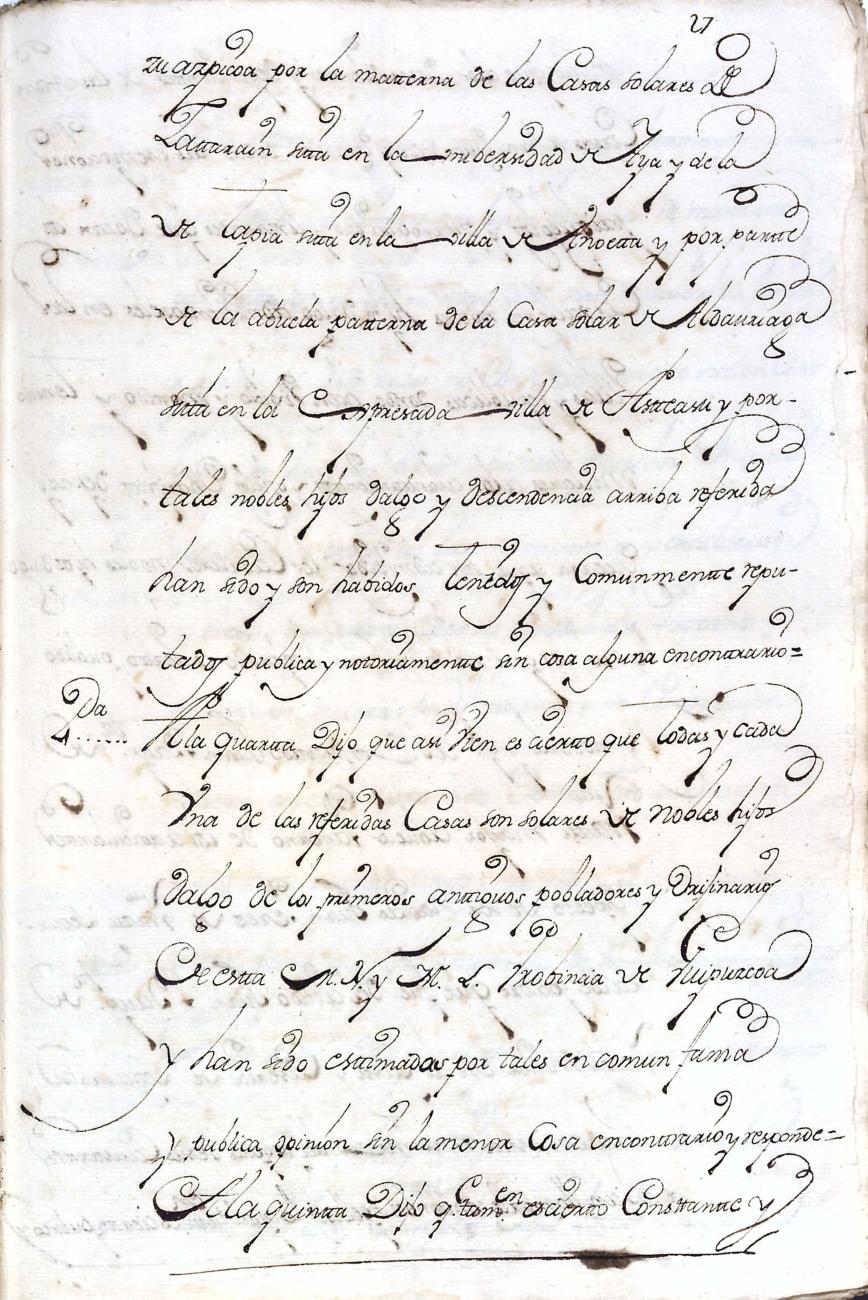 27
zuarpicoa por la matterna de las Casas solares de
Lattarain sitta en la unibersidad de Aya y de la
de tapia sitta en la villa de Anoetta y por partte
de la abuela patterna de la Casa solar de Aldaurriaga
sitta en la Expresada villa de Astteasu y por-
tales nobles hijos dalgo y descendencia arriba referida
han sido y son habidos tenidos y Comunmentte repu-
tados publica y notoriamentte sin cosa alguna encontrario=
4 Da ...... A la quartta Dijo que asi vien es ciertto que todas y cada
Vna de las referidas Casas son solares de nobles hijos
dalgo de los primeros anttiguos pobladores y Orijinarios
de estta M. N. y M. L. Probincia de Guipuzcoa
y han sido esttimadas por tales en comun fama
y publica opinion sin la menor Cosa encontrario y responde=
A la quintta Dijo q. tam.en es ciertto Consttantte y